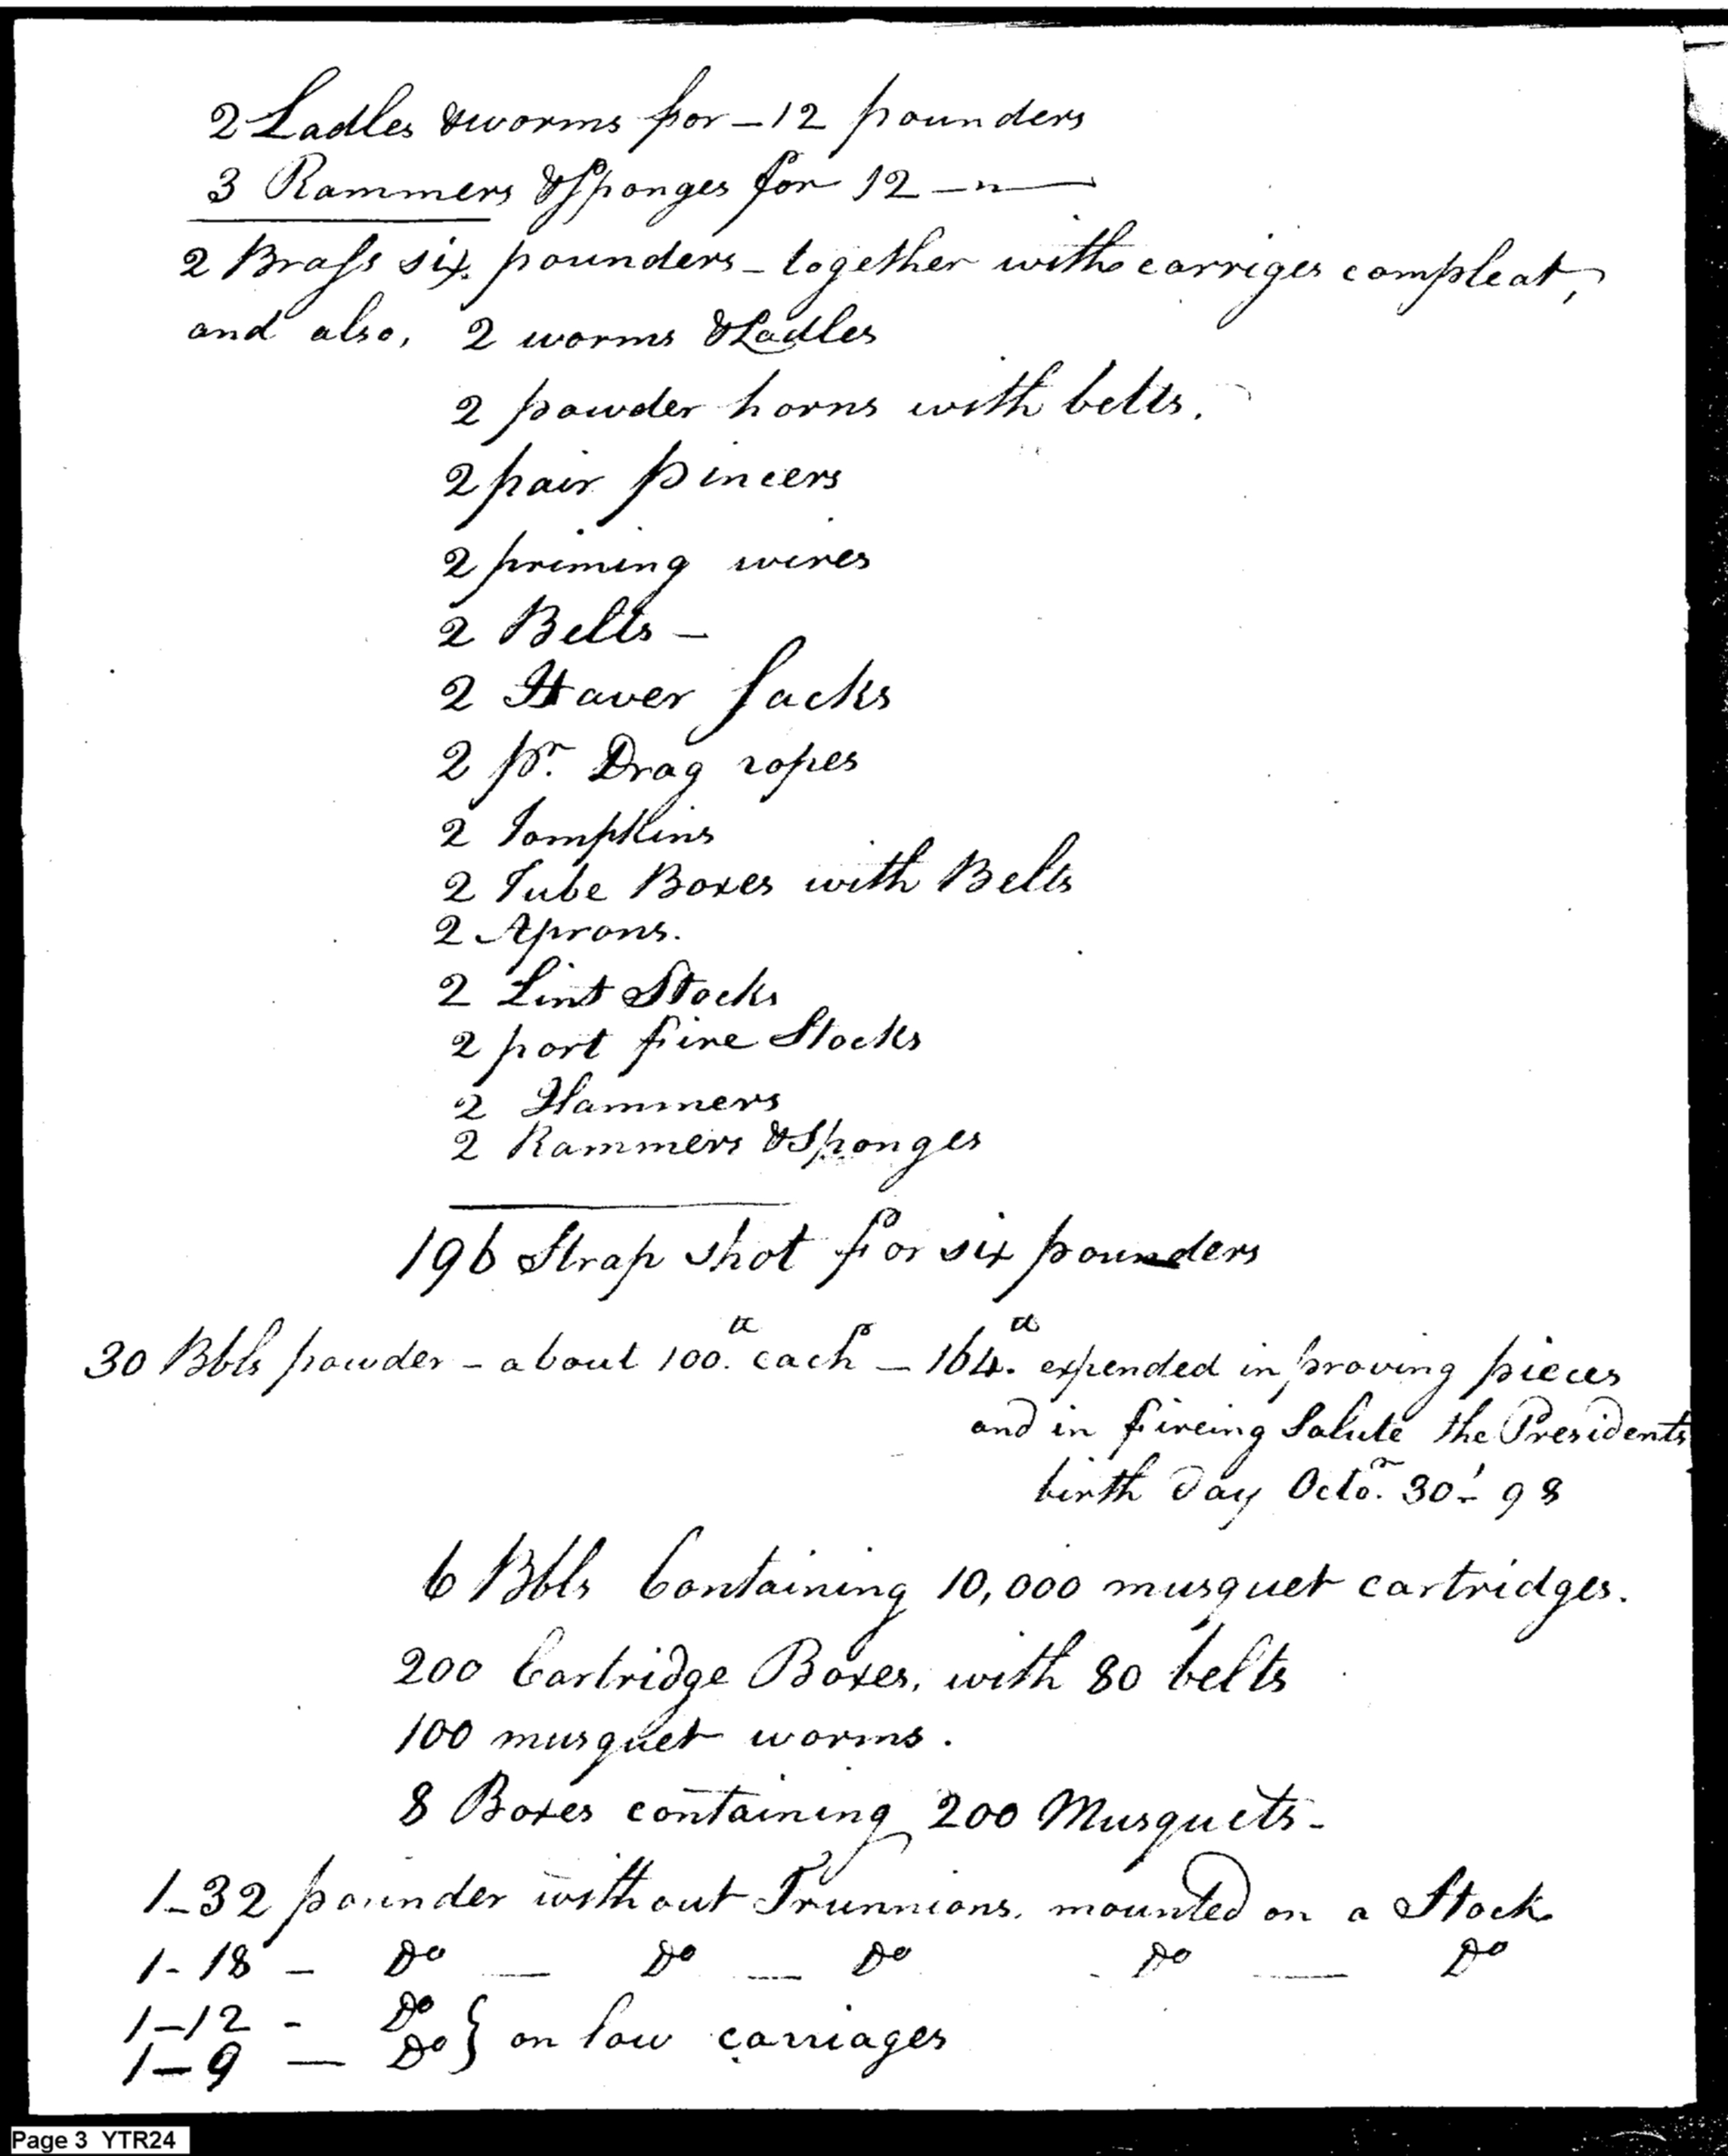 2 Ladles & worms for - 12 pounders
3 Rammers & Sponges for 12 - " -
2 Brass six pounders - together with carriges compleat,
and also, 2 worms & Ladles
2 powder horns with belts.
2 pair pincers
2 priming wires
2 Belts -
2 Haver Sacks
2 pr. Drag ropes
2 Tompkins
2 Tube Boxes with Belts
2 Aprons.
2 Lint Stocks
2 port fire Stocks
2 Hammers
2 Rammers & Sponges
196 Strap shot for six pounders
30 Bbls powder - about 100. each - 164. expended in proving pieces
and in fireing Salute the Presidents
birth day Octor. 30 - 98
6 Bbls Containing 10,000 musquet cartridges.
200 Cartridge Boxes, with 80 belts
100 musquet worms.
8 Boxes containing 200 Musquets -
1 - 32 pounder without Trunnions. mounted on a Stock
1 - 18 - Do - Do - Do - Do - Do
1 - 12 - Do
1 - 9 - Do } on low carriages
Page 3 YTR24